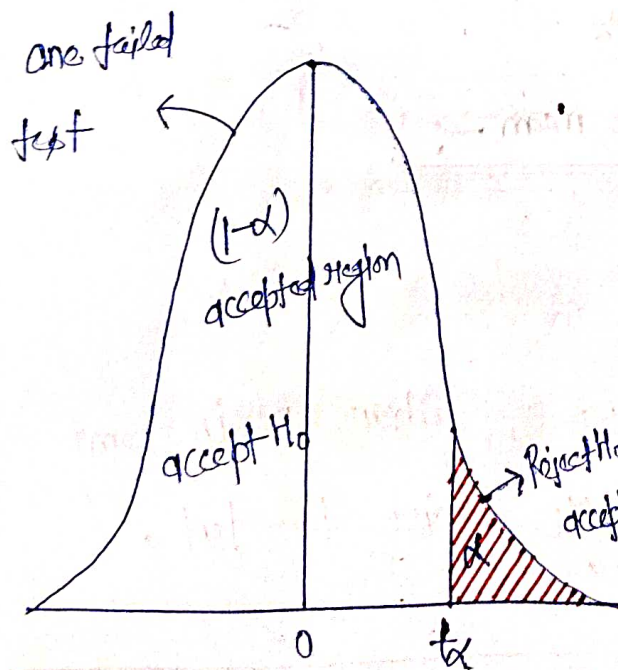 one tailed
test
(1-α)
accepted region
accept H₀
Reject H₀
accept
α
0
tα